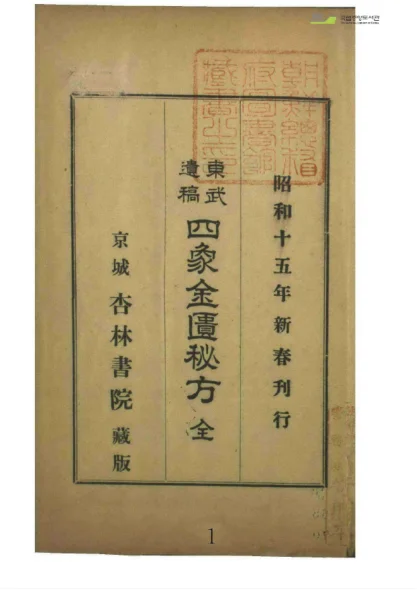 昭和十五年新春刊行
東武
遺稿
四象金匱秘方 全
京城 杏林書院 藏版
朝鮮總督
府圖書館
藏書之印
1